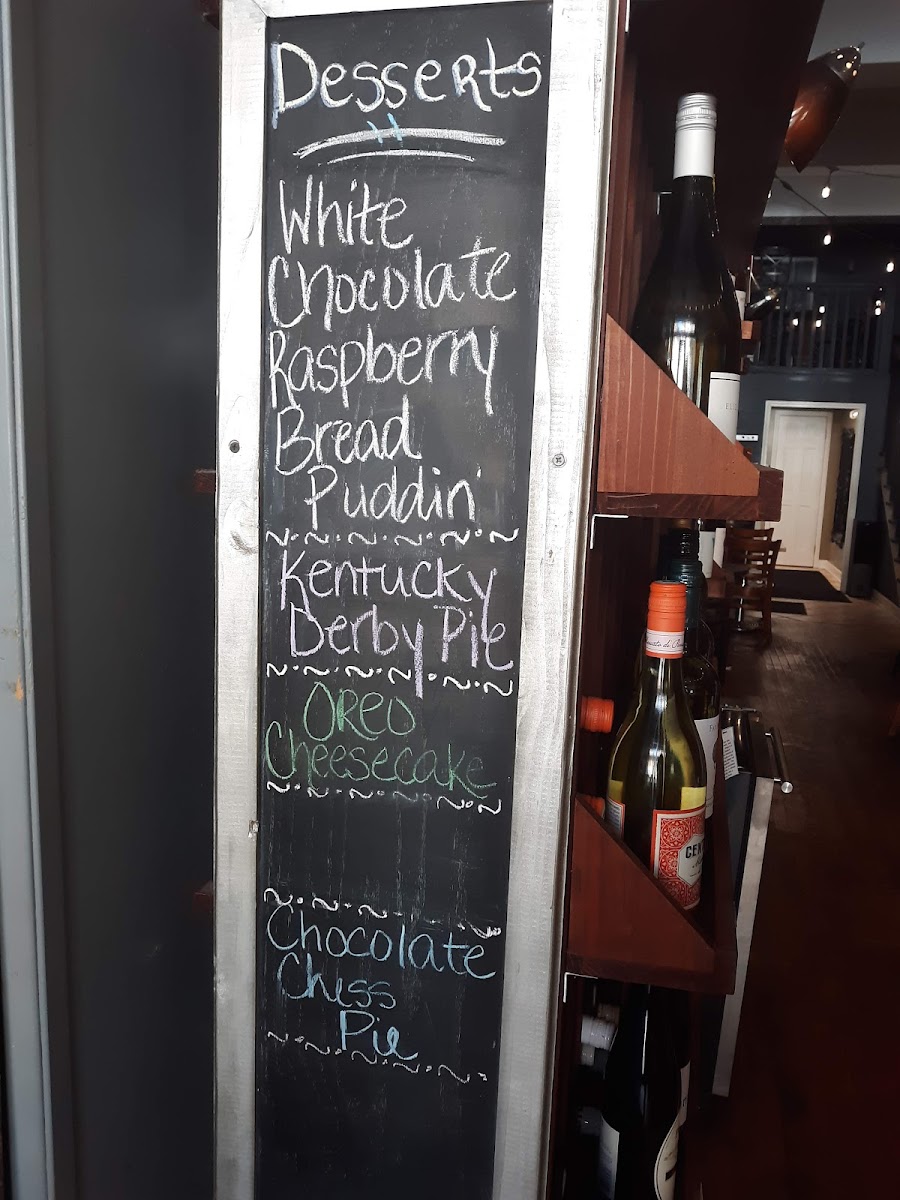 Desserts
White
Chocolate
Raspberry
Bread
Puddin'
Kentucky
Derby Pie
Oreo
Cheesecake
Chocolate
Chess
Pie